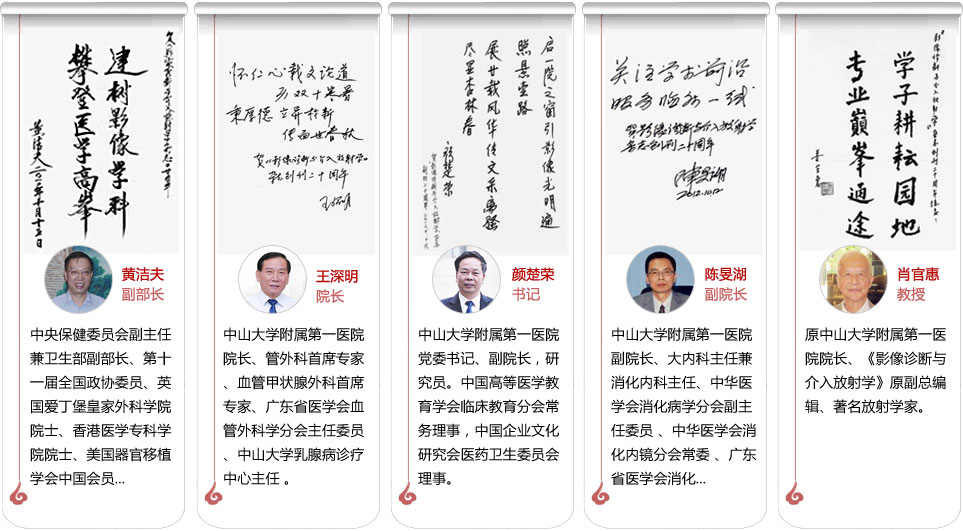 建树影像学科
攀登医学高峯
黄洁夫二〇一二年十月十五日
怀仁心载文论道
历双十寒暑
秉厚德立异标新
传西世春秋
贺《影像诊断与介入放射学》
杂志创刊二十周年
王深明
启一院之窗引影像光明遍
照景云路
展廿载风华传文采离骚
尽墨杏林春
颜楚荣
关注学术前沿
服务临床一线
贺影像诊断与介入放射学
杂志创刊二十周年
陈旻湖
2012.10.12
学子耕耘园地
专业巅峯通途
肖官惠
黄洁夫
副部长
中央保健委员会副主任
兼卫生部副部长、第十
一届全国政协委员、英
国爱丁堡皇家外科学院
院士、香港医学专科学
院院士、美国器官移植
学会中国会员...
王深明
院长
中山大学附属第一医院
院长、管外科首席专家
、血管甲状腺外科首席
专家、广东省医学会血
管外科学分会主任委员
、中山大学乳腺病诊疗
中心主任 。
颜楚荣
书记
中山大学附属第一医院
党委书记、副院长，研
究员。中国高等医学教
育学会临床教育分会常
务理事，中国企业文化
研究会医药卫生委员会
理事。
陈旻湖
副院长
中山大学附属第一医院
副院长、大内科主任兼
消化内科主任、中华医
学会消化病学分会副主
任委员 、中华医学会消
化内镜分会常委 、广东
省医学会消化...
肖官惠
教授
原中山大学附属第一医
院院长、《影像诊断与
介入放射学》原副总编
辑、著名放射学家。